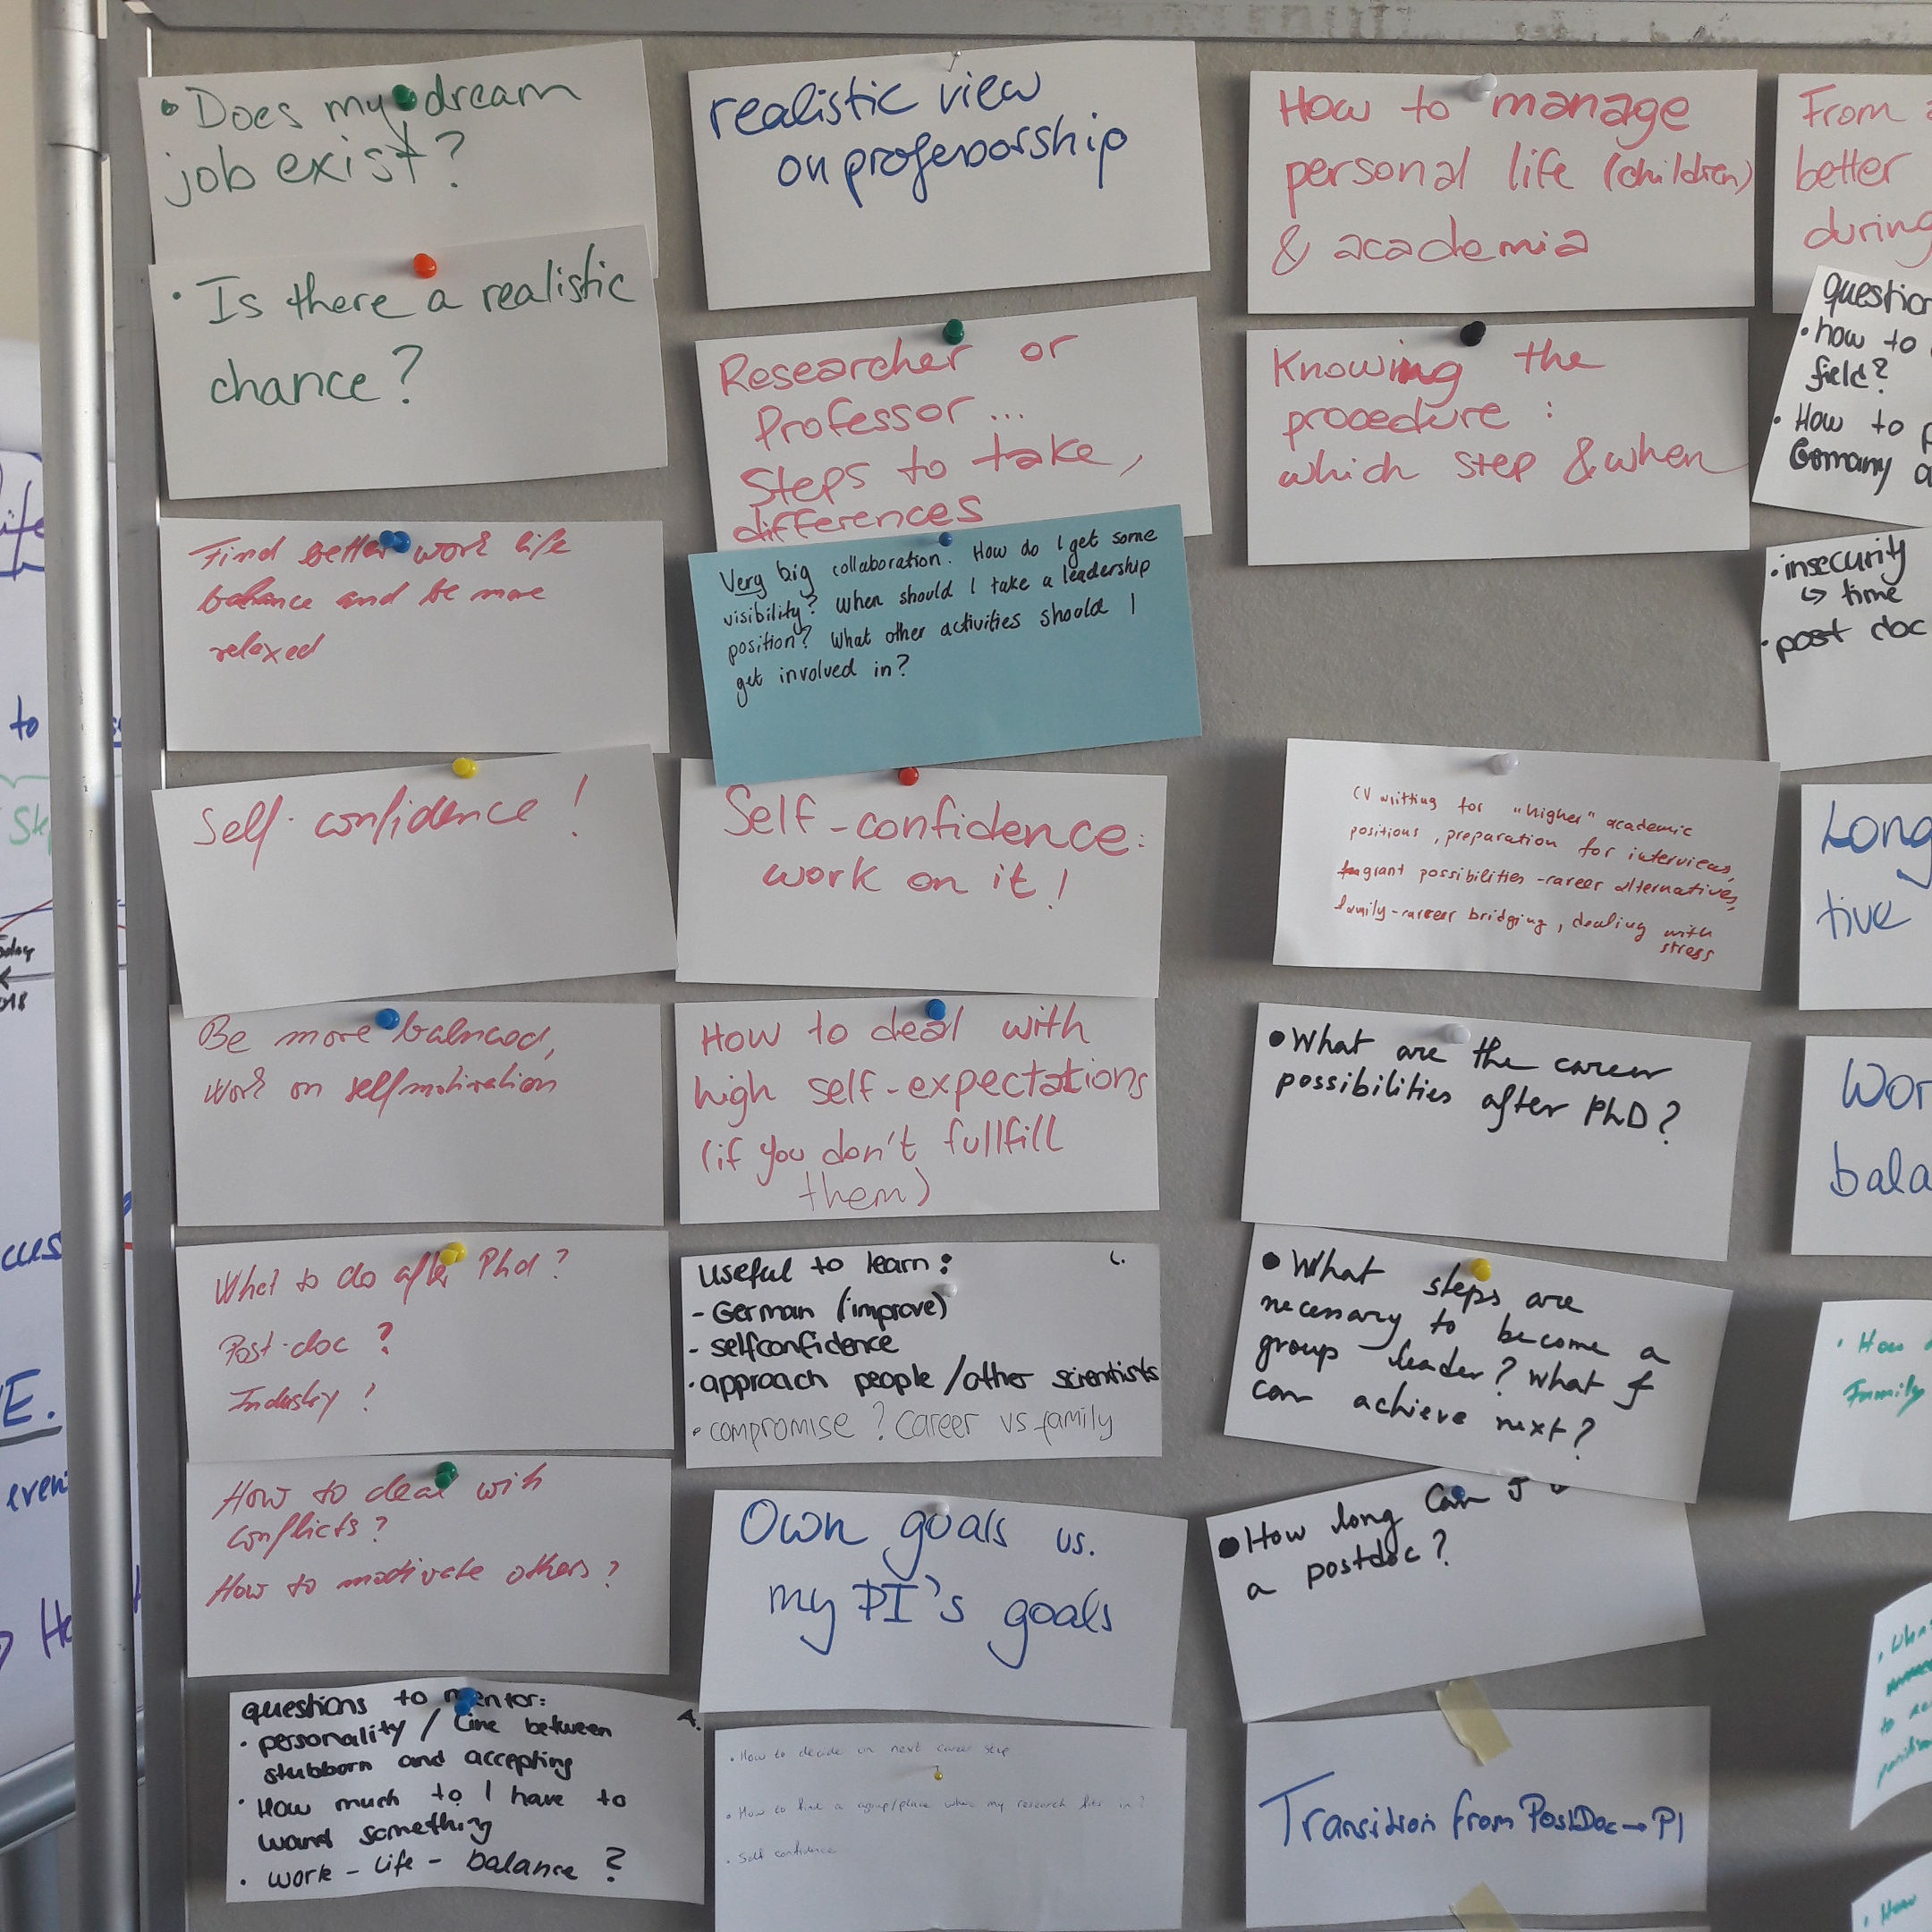 • Does my dream
job exist?
• Is there a realistic
chance?
Find better work life
balance and be more
relaxed
Self-confidence!
Be more balanced,
work on selfmotivation
What to do after Phd?
Post-doc?
Industry?
How to deal with
conflicts?
How to motivate others?
questions to mentor:
• personality / Line between
stubborn and accepting
• How much to I have to
wand something
• work-life-balance?
realistic view
on professorship
Researcher or
Professor...
Steps to take,
differences
Very big collaboration. How do I get some
visibility? When should I take a leadership
position? What other activities should I
get involved in?
Self-confidence:
work on it!
How to deal with
high self-expectations
(if you don't fullfill
them)
Useful to learn:
- German (improve)
- selfconfidence
• approach people / other scientists
• compromise? career vs family
Own goals vs.
my PI's goals
• How to decide on next career step
• How to find a group/place where my research fits in?
• Self confidence
How to manage
personal life (children)
& academia
Knowing the
procedure:
which step & when
CV writting for "higher" academic
positions, preparation for interviews,
grant possibilities - career alternatives,
family-career bridging, dealing with
stress
• What are the career
possibilities after PhD?
• What steps are
necessary to become a
group leader? What I
can achieve next?
• How long can I
a postdoc?
Transition from PostDoc → PI
From
better
during
• how to
field?
• How to
Germany
• insecurity
↳ time
• post doc
Long
tive
• How
Family
to
• How